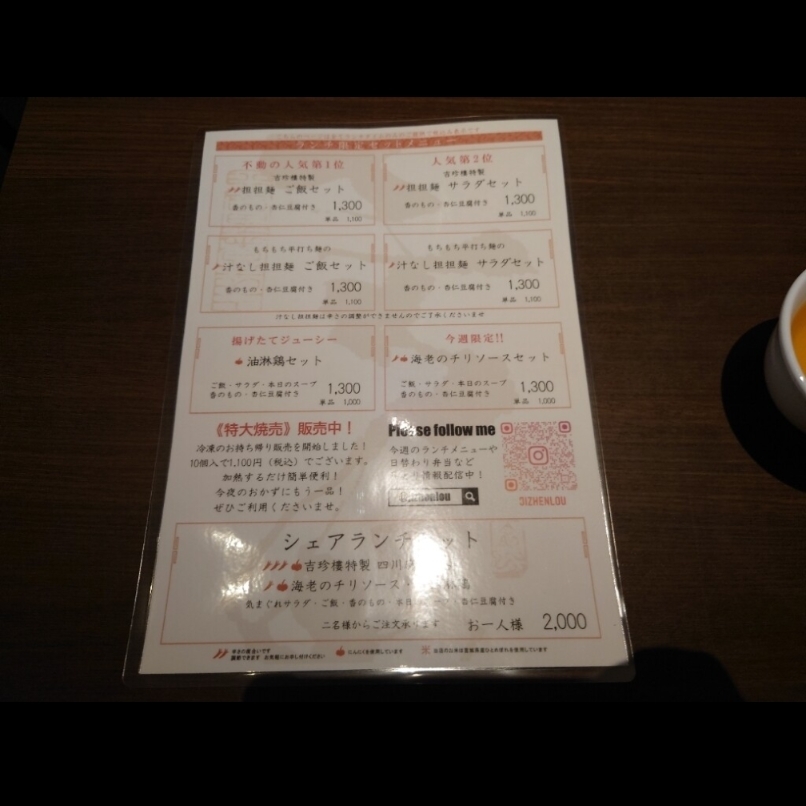 ランチ限定セットメニュー
不動の人気第1位
吉珍樓特製
担担麺 ご飯セット
香のもの・杏仁豆腐付き 1,300
単品 1,100
人気第2位
吉珍樓特製
担担麺 サラダセット
香のもの・杏仁豆腐付き 1,300
単品 1,100
もちもち平打ち麺の
汁なし担担麺 ご飯セット
香のもの・杏仁豆腐付き 1,300
単品 1,100
もちもち平打ち麺の
汁なし担担麺 サラダセット
香のもの・杏仁豆腐付き 1,300
単品 1,100
汁なし担担麺は辛さの調整ができませんのでご了承くださいませ
揚げたてジューシー
油淋鶏セット
ご飯・サラダ・本日のスープ
香のもの・杏仁豆腐付き 1,300
単品 1,000
今週限定!!
海老のチリソースセット
ご飯・サラダ・本日のスープ
香のもの・杏仁豆腐付き 1,300
単品 1,000
《特大焼売》販売中！
冷凍のお持ち帰り販売を開始しました！
10個入で1,100円（税込）でございます。
加熱するだけ簡単便利！
今夜のおかずにもう一品！
ぜひご利用くださいませ。
Please follow me
今週のランチメニューや
日替わり弁当など
情報配信中！
JIZHENLOU
シェアランチセット
吉珍樓特製 四川
海老のチリソース
気まぐれサラダ・ご飯・香のもの・本日のスープ・杏仁豆腐付き
二名様からご注文承ります お一人様 2,000
辛さの度合いです
調節できます お気軽にお申し付けください
にんにくを使用しています